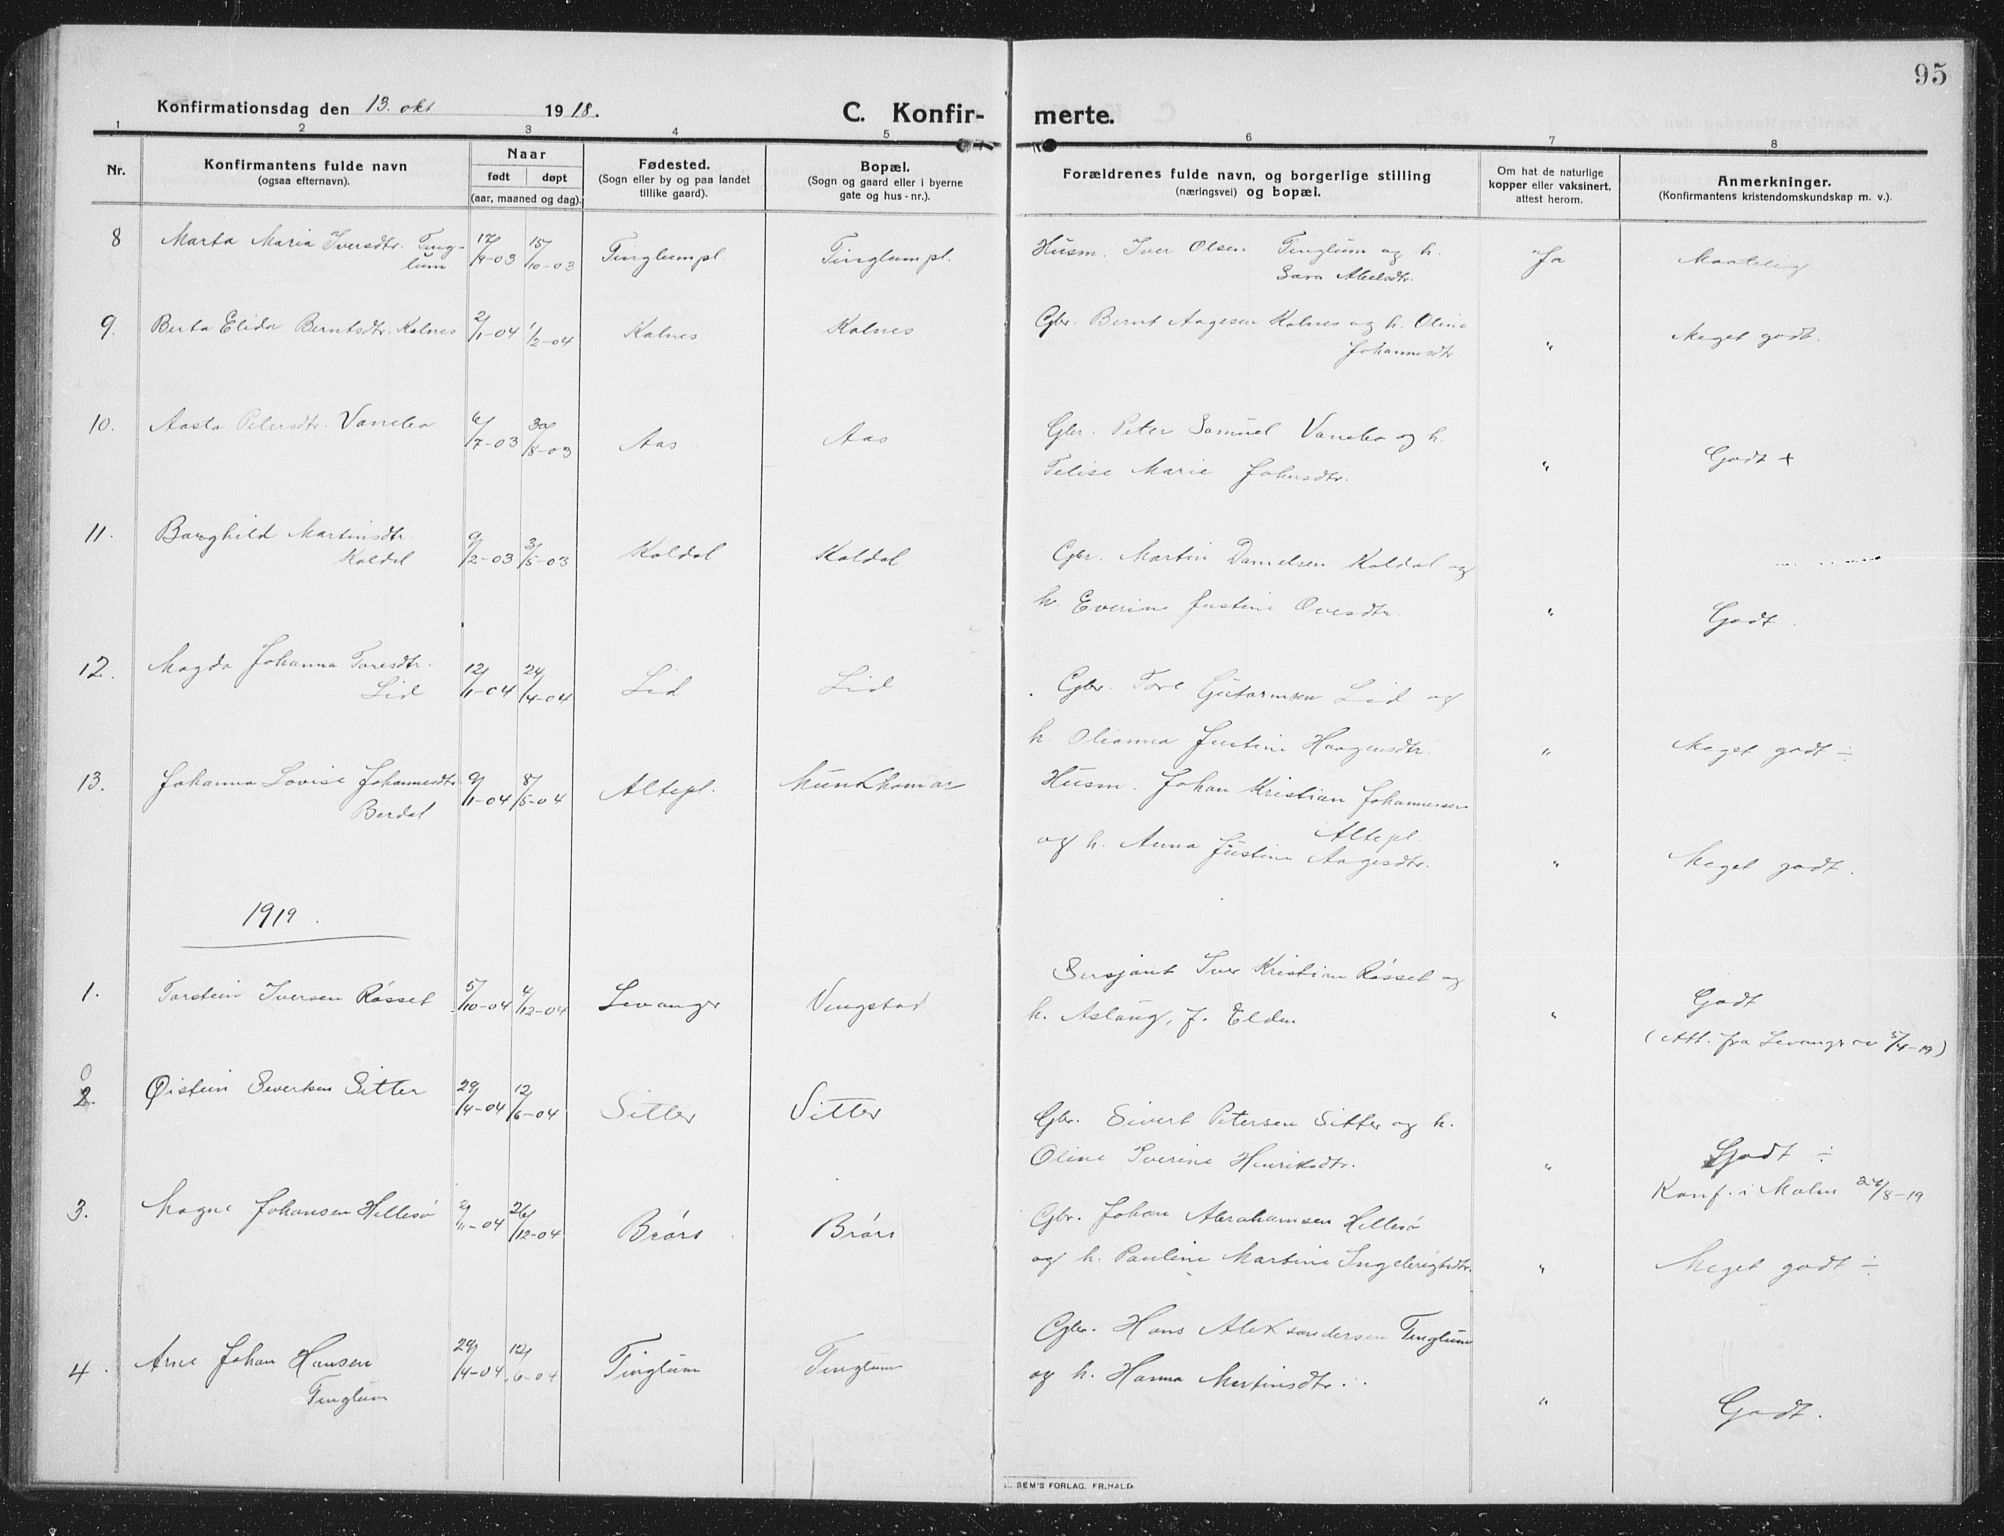 95
Konfirmationsdag den 13. okt 1918.
C. Konfir- merte.
1 2 3 4 5 6 7 8
Nr.
Konfirmantens fulde navn
(ogsaa efternavn).
Naar
født døpt
(aar, maaned og dag).
Fødested.
(Sogn eller by og paa landet
tillike gaard).
Bopæl.
(Sogn og gaard eller i byerne
gate og hus-nr.).
Forældrenes fulde navn, og borgerlige stilling
(næringsvei) og bopæl.
Om hat de naturlige
kopper eller vaksinert,
attest herom.
Anmerkninger.
(Konfirmantens kristendomskundskap m. v.).
8 Marta Maria Iversdtr. Ting- 17/9-03 15/10-03 Tinglumpl. Tinglumpl. Husm. Iver Olsen Tinglum og h. Ja Maatelig
lum Sara Abelsdtr.
9. Berta Elida Berntsdtr. Kalnes 2/1-04 1/2-04 Kalnes Kalnes Gbr. Bernt Aagesen Kalnes og h. Oline " Meget godt.
Johannesdtr.
10. Aasta Petersdtr. Vanebo 6/7-03 30/8-03 Aas Aas Gbr. Peter Samuel Vanebo og h. Godt +
Felise Marie Johnsdtr. "
11. Borghild Martinsdtr. 9/2-03 3/5-03 Koldal Koldal Gbr. Martin Danielsen Koldal og
Koldal
h. Everine Justine Ovesdtr. " Godt.
12. Magda Johanna Toresdtr. 12/1-04 24/4-04 Lid Lid Gbr. Tore Gutormsen Lid og
Lid
h. Olianna Justine Haagensdtr. " Meget godt ÷
13. Johanna Lovise Johannesdtr. 9/1-04 8/5-04 Altepl. Munkhamar Husm. Johan Kristian Johannesen
Bardal Altepl.
og h. Anna Justine Aagesdtr. " Meget godt.
1919.
1. Torstein Iversen Røsset 5/10-04 4/12-04 Levanger Vengstad Sersjant Iver Kristian Røsset og Godt
h. Aslaug, f. Elden " (Att. fra Levanger av 5/4-19)
2. Øistein Sivertsen Sitter 29/4-04 12/6-04 Sitter Sitter Gbr. Sivert Petersen Sitter og h.
Oline Iverine Henriksdtr. " Godt ÷
Konf. i Malm 24/8-19
3. Magne Johansen Hellesø 2/11-04 26/12-04 Brørs Brørs Gbr. Johan Abrahamsen Hellesø
og h. Pauline Martine Ingebrigtsdtr. " Meget godt ÷
4. Arne Johan Hansen 29/4-04 12/6-04 Tinglum Tinglum Gbr. Hans Aleksandersen Tinglum
Tinglum
og h. Hanna Martinsdtr. " Godt.
SEM'S FORLAG, FR.HALD